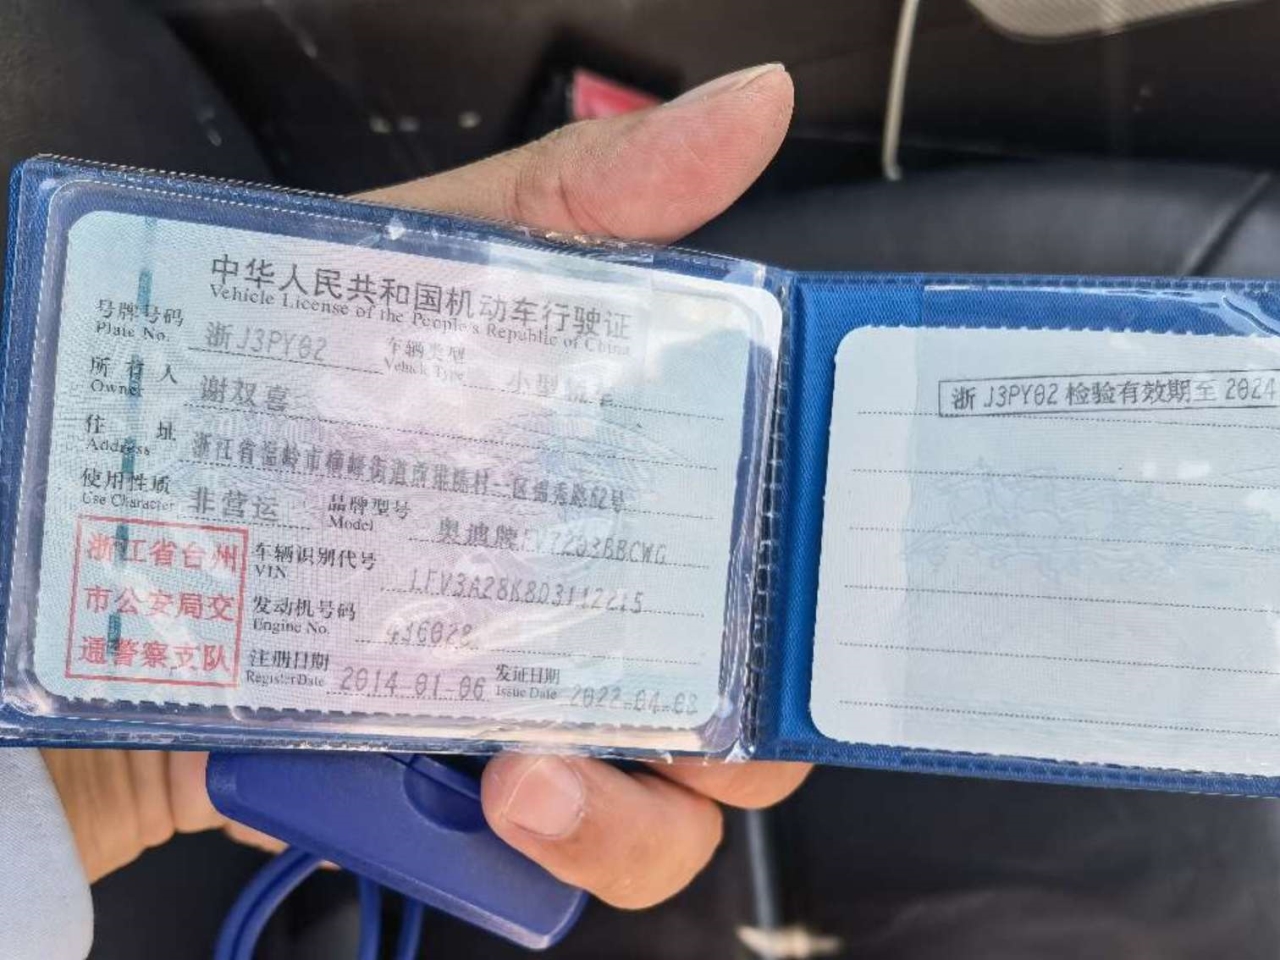 中华人民共和国机动车行驶证
Vehicle License of the People's Republic of China
号牌号码 浙J3PY02 车辆类型 小型轿车
Plate No. Vehicle Type
所有人 谢双喜
Owner
住址 浙江省温岭市横峰街道前洋陈村一区锦秀路62号
Address
使用性质 非营运 品牌型号 奥迪牌FV7203BBCWG
Use Character Model
浙江省台州
市公安局交
通警察支队
车辆识别代号 LFV3A28K8D3112215
VIN
发动机号码
Engine No.
注册日期 2014-01-06 发证日期 2022-04-08
Register Date Issue Date
浙J3PY02检验有效期至2024